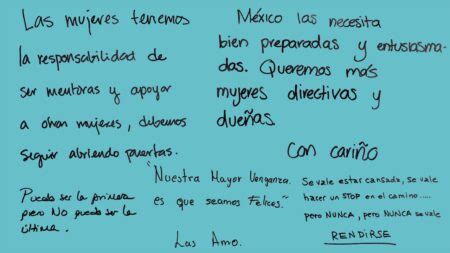 Las mujeres tenemos
la responsabilidad de
ser mentoras y apoyar
a otras mujeres, debemos
seguir abriendo puertas.
México las necesita
bien preparadas y entusiasma-
das. Queremos más
mujeres directivas y
dueñas
Con cariño
"Nuestra Mayor Venganza
es que seamos Felices."
Las Amo.
Puedo ser la primera
pero NO puedo ser la
última.
Se vale estar cansada, se vale
hacer un STOP en el camino.....
pero NUNCA, pero NUNCA se vale
RENDIRSE